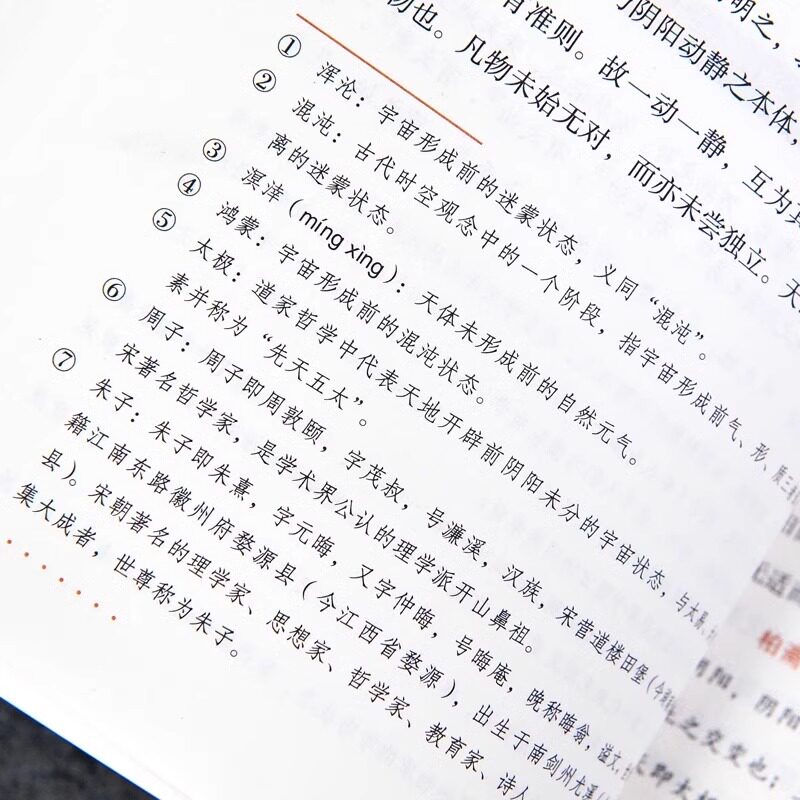 明之，
阴阳动静之本体，
有准则。故一动一静，互为其
物也。凡物未始无对，而亦未尝独立。天
① 浑沦：宇宙形成前的迷蒙状态，义同“混沌”。
② 混沌：古代时空观念中的一个阶段，指宇宙形成前气、形、质三
离的迷蒙状态。
③ 溟涬（míng xìng）：天体未形成前的自然元气。
④ 鸿蒙：宇宙形成前的混沌状态。
⑤ 太极：道家哲学中代表天地开辟前阴阳未分的宇宙状态，与太易、
素并称为“先天五太”。
⑥ 周子：周子即周敦颐，字茂叔，号濂溪，汉族，宋营道楼田堡（今
宋著名哲学家，是学术界公认的理学派开山鼻祖。
⑦ 朱子：朱子即朱熹，字元晦，又字仲晦，号晦庵，晚称晦翁，谥文，
籍江南东路徽州府婺源县（今江西省婺源），出生于南剑州尤溪（
县）。宋朝著名的理学家、思想家、哲学家、教育家、诗人
集大成者，世尊称为朱子。
阴阳，阴阳
之交变也；